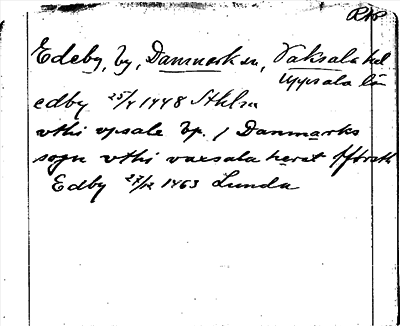 RAP
Edeby, by, Danmark sn, Vaksala hd
Uppsala län
edby 25/1 1448 Sthlm
vthi vpsale bp. / Danmarks
sogn vthi vaxsala heret
Edby 27/12 1463 Lunda